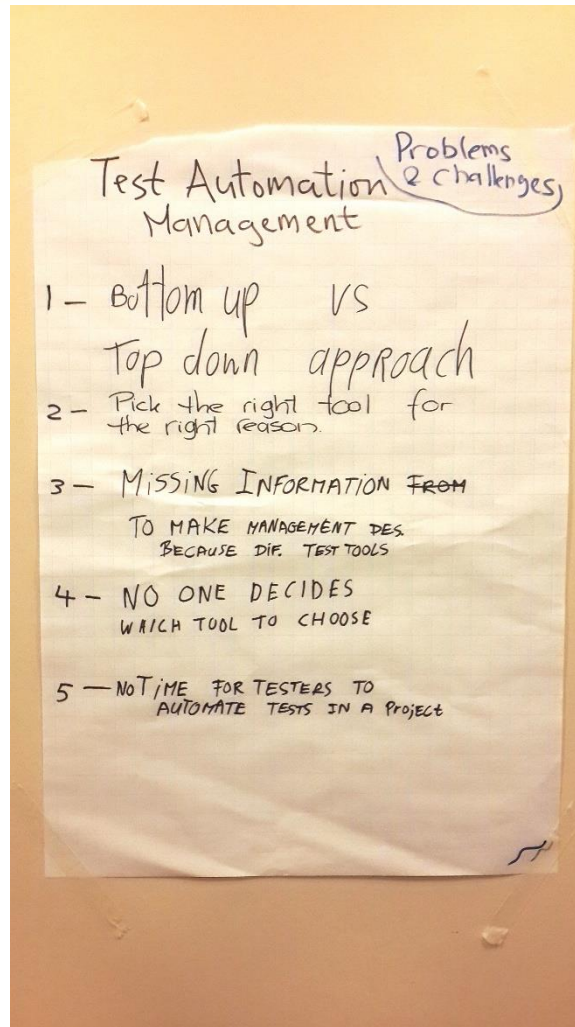 Test Automation
Management
Problems
& Challenges
1 - Bottom up vs
Top down approach
2 - Pick the right tool for
the right reason.
3 - MISSING INFORMATION FROM
TO MAKE MANAGEMENT DES.
BECAUSE DIF. TEST TOOLS
4 - NO ONE DECIDES
WHICH TOOL TO CHOOSE
5 - NO TIME FOR TESTERS TO
AUTOMATE TESTS IN A PROJECT